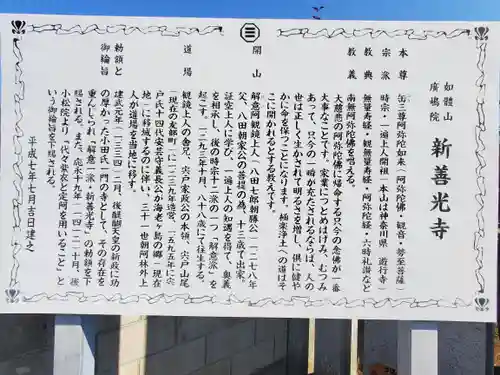 如體山
廣嶋院
新善光寺
本尊
缶三尊阿弥陀如来(阿弥陀佛・観音・勢至菩薩)
宗派
時宗・一遍上人開祖・本山は神奈川県 遊行寺
教典
無量寿経・観無量寿経・阿弥陀経・六時礼讃など
教義
南無阿弥陀佛を唱える。
大慈悲の阿弥陀佛に帰命する只今の念佛が一番
大事なことです。家業につとめはげみ、むつみ
あって、只今の一瞬が充たされるならば、人の
世は正しく生かされて明るさを増し、倶に健や
かに命を保つことになります。極楽浄土への道はそ
こに開かれるとする教えです。
開山
解意阿観鏡上人(八田七郎朝篠)一二七八年
父、八田朝家公の菩提の為、十三歳で出家。
証空上人に学び、一遍上人の知遇を得て、奥義
を相承し、後の時宗十二派の一つ「解意派」を
起こす。一三九二年十月、八十八歳にて往生する。
道場
観鏡上人の舎兄、宍戸家政公の本領、宍戸山尾
(現在の友部町)に一三二九年造営。一五九五年宍
戸氏十四代安芸守義長公が海老ヶ島の郷(現在
地)に移城するのに伴い、三十一世朝阿林外上
人が道場を当地に移す。
勅額と
御綸旨
建武元年(一三三四)二月、後醍醐天皇の新政に功
の厚かった小田氏一門の寺として、その存在を
重んじられ「解意一流・新善光寺」の勅額を下
賜される。また、応永十九年(一四一二)十月、後
小松院より「代々紫衣と定阿を用いること」と
いう御綸旨を下賜される。
平成七年七月吉日建之